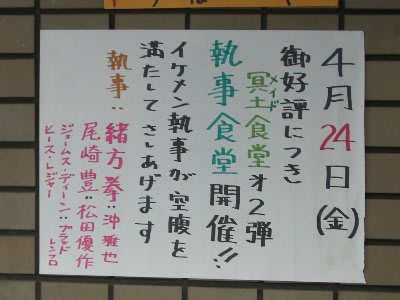 4月24日(金)
御好評につき
冥土食堂オ2弾
メイド
執事食堂開催!!
イケメン執事が空腹を
満たしてさしあげます
執事:緒方拳:沖雅也
尾崎豊:松田優作
ジェームス・ディーン:ブラッド・レンフロ
ヒース・レジャー